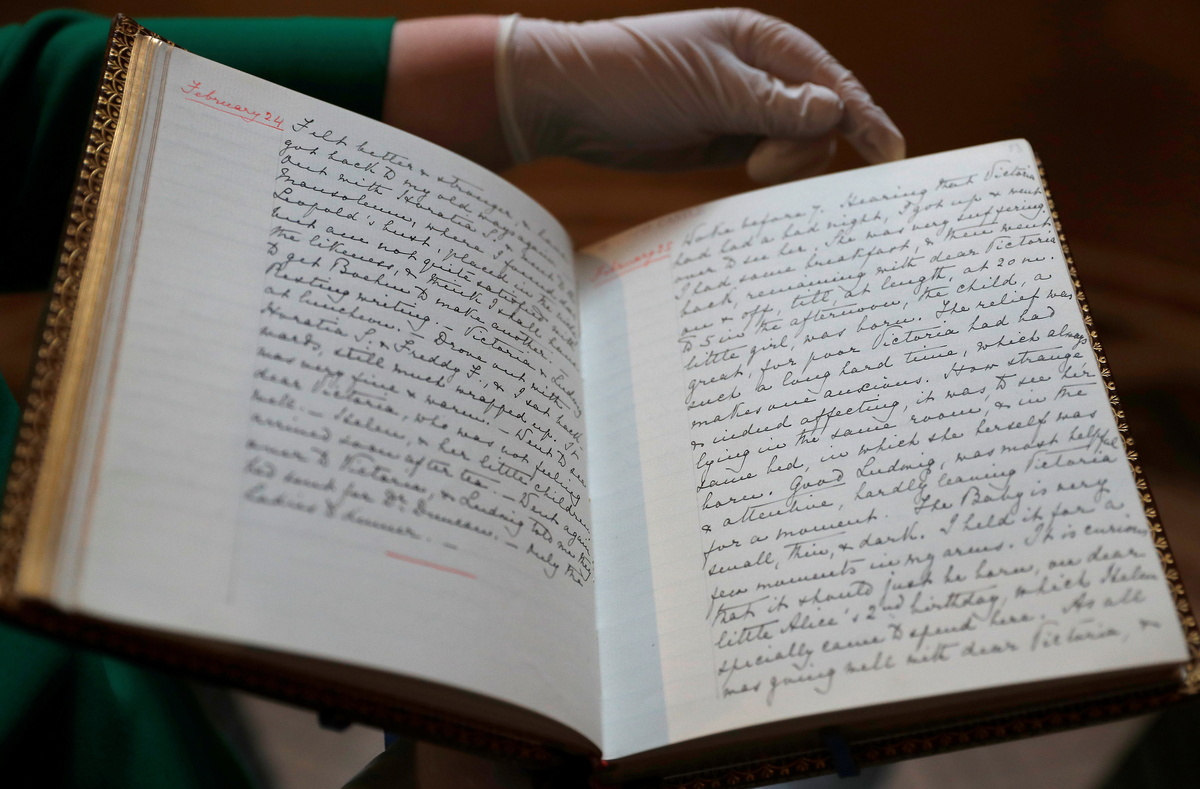 February 24.
Felt better & stronger, & have
got back to my old ways again.
out with Horatia S. & I found
Mausoleum, where
Leopold's bust, placed in the
but am not quite satisfied with
the likeness, & think I shall have
to get Boehm to make another. —
Resting writing. Victoria & Ludwig
at luncheon. — Drove out, with
Horatia S. & Freddy F., & sat
wards, still much wrapped up. It
was very fine & warm. — Went to see
dear Victoria, who was not feeling
well. — Helen, & her little children
arrived soon after tea. — Went again
over to Victoria, & Ludwig told me they
had sent for Dr. Duncan. — Only the
Ladies to dinner. —
53
February 25
Woke before 7. Hearing that Victoria
had had a bad night, I got up & went
over to see her. She was very suffering.
I had some breakfast, & then went
back, remaining with dear Victoria
on & off, till, at length, at 20 m.
to 5 in the afternoon, the child, a
little girl, was born. The relief was
great, for poor Victoria had had
such a long hard time, which always
makes one anxious. How strange
& indeed affecting, it was, to see her
lying in the same room, & in the
same bed, in which she herself was
born. Good Ludwig, was most helpful
& attentive, hardly leaving Victoria
for a moment. The Baby is very
small, thin, & dark. I held it for a
few moments in my arms. It is curious
that it should just be born, on dear
little Alice's 2nd birthday, which Helen
specially came to spend here. As all
was going well with dear Victoria, &